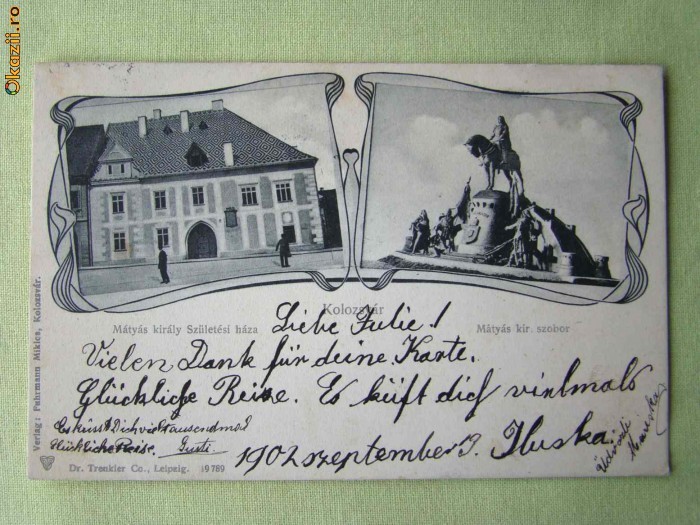 Okazii.ro
Kolozsvár
Mátyás király Születési háza
Mátyás kir. szobor
Liebe Julie!
Vielen Dank für deine Karte.
Glückliche Reise. Es küßt dich vielmals
Iluska.
1902 szeptember 3.
Es küsst Dich vieltausendmal
Glückliche Reise. Gusti
Üdvözli
Verlag: Fuhrmann Miklós, Kolozsvár.
Dr. Trenkler Co., Leipzig. 19789